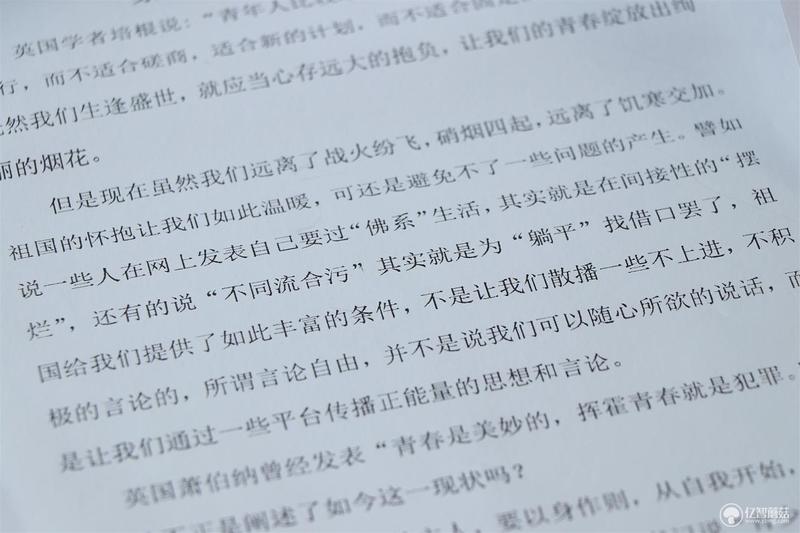 英国学者培根说:“青年人比较
行,而不适合磋商,适合新的计划,而不适合固定
然我们生逢盛世,就应当心存远大的抱负,让我们的青春绽放出绚
丽的烟花。
但是现在虽然我们远离了战火纷飞,硝烟四起,远离了饥寒交加。
祖国的怀抱让我们如此温暖,可还是避免不了一些问题的产生。譬如
说一些人在网上发表自己要过“佛系”生活,其实就是在间接性的“摆
烂”,还有的说“不同流合污”其实就是为“躺平”找借口罢了,祖
国给我们提供了如此丰富的条件,不是让我们散播一些不上进,不积
极的言论的,所谓言论自由,并不是说我们可以随心所欲的说话,而
是让我们通过一些平台传播正能量的思想和言论。
英国萧伯纳曾经发表“青春是美妙的,挥霍青春就是犯罪。”
不正是阐述了如今这一现状吗?
人,要以身作则,从自我开始,
亿智蘑菇
www.yzmg.com